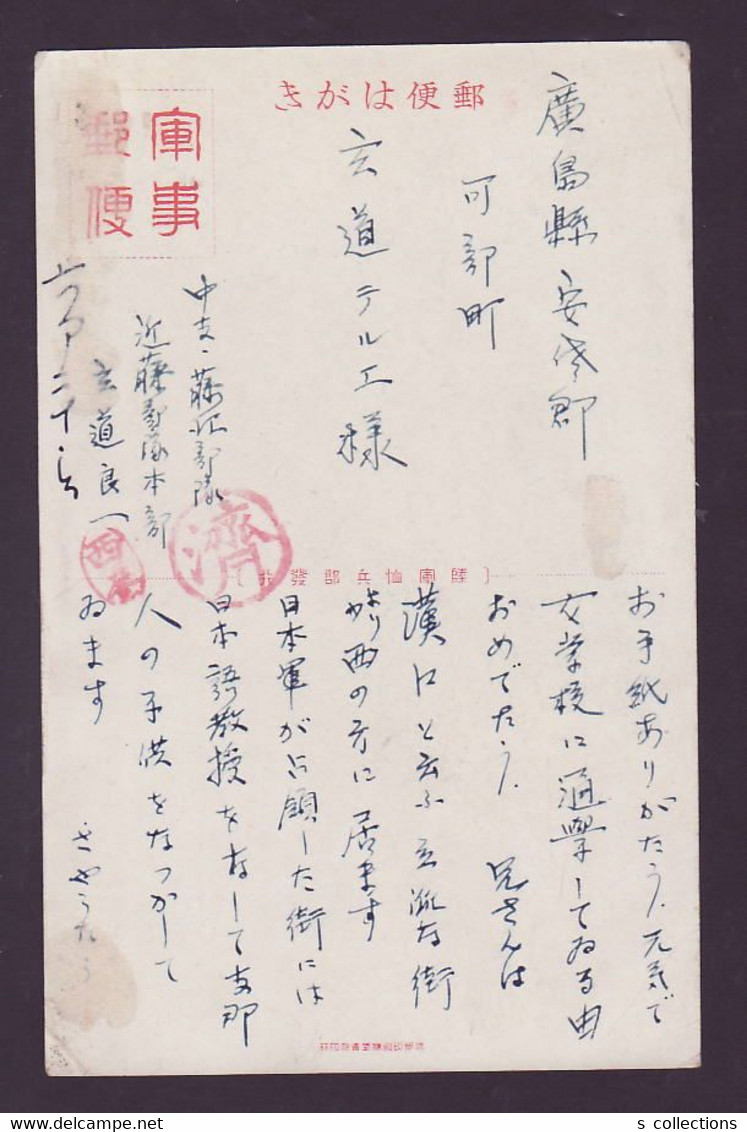 郵便はがき
軍事
郵便
廣島縣安佐郡
可部町
玄道テルエ様
中支・藤江部隊
近藤部隊本部
玄道良一
濟
陸軍恤兵部發行
お手紙ありがたう、元気で
女学校に通學してゐる由
おめでたう、 兄さんは
漢口と云ふ立派な街
より西の方に居ます
日本軍が占領した街には
日本語教授をなして支那
人の子供をなつかして
ゐます さやうなら
s collections